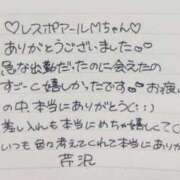 ♡レスポアールMちゃん♡
ありがとうございました♡♡
急な出勤だったのに会えたの
すごーく嬉しかったです♡お夜
の中本当にありがとう(:;)
差し入れも本当にめちゃ嬉しくて
いつも色々考えてくれて本当にあり
芹沢